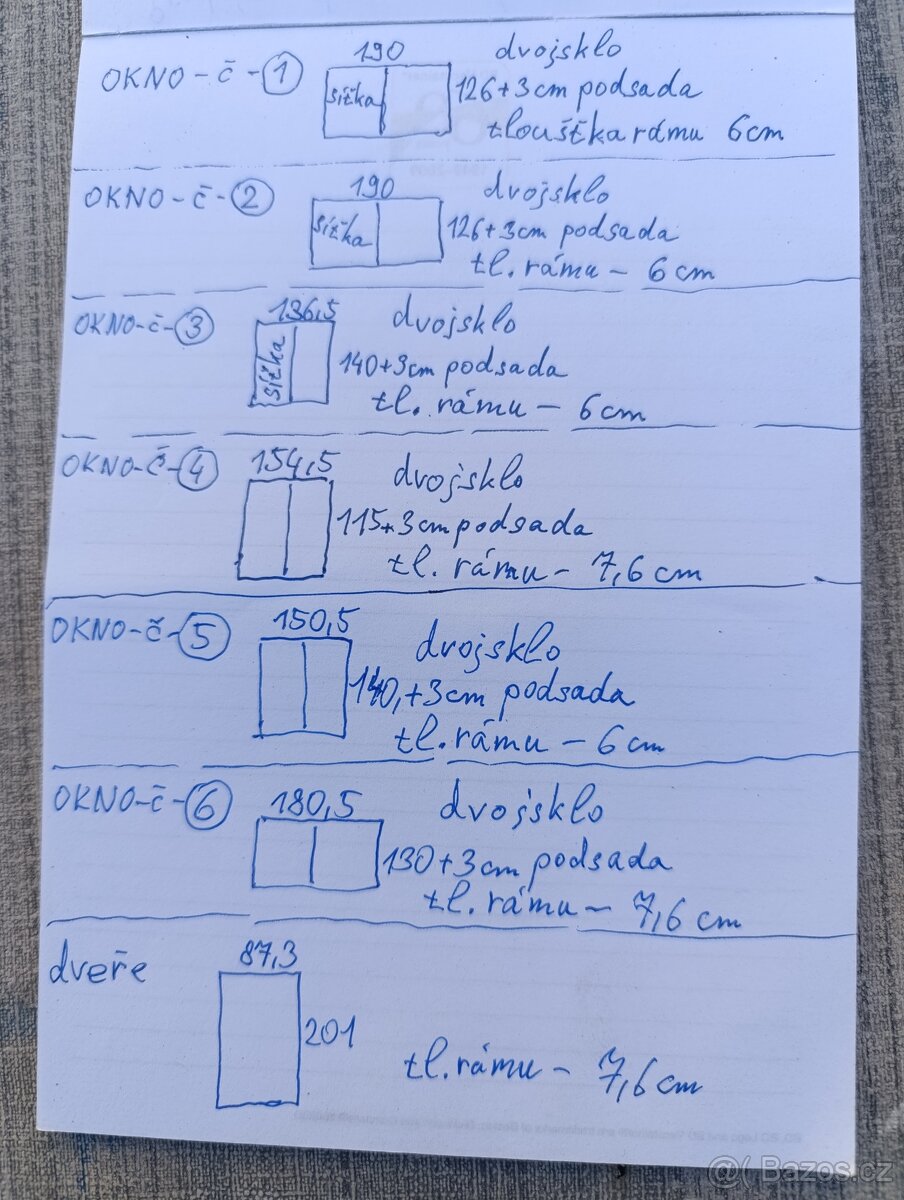 190 dvojsklo
OKNO-č-1 sítka 126+3cm podsada
tloušťka rámu 6cm
190 dvojsklo
OKNO-č-2 sítka 126+3cm podsada
tl. rámu - 6cm
136,5 dvojsklo
OKNO-č-3 sítka 140+3cm podsada
tl. rámu - 6cm
154,5 dvojsklo
OKNO-č-4 115+3cm podsada
tl. rámu - 7,6cm
150,5 dvojsklo
OKNO-č-5 140,+3cm podsada
tl. rámu - 6cm
180,5 dvojsklo
OKNO-č-6 130+3cm podsada
tl. rámu - 7,6cm
87,3
dveře
201
tl. rámu - 7,6cm
@( Bazos.cz